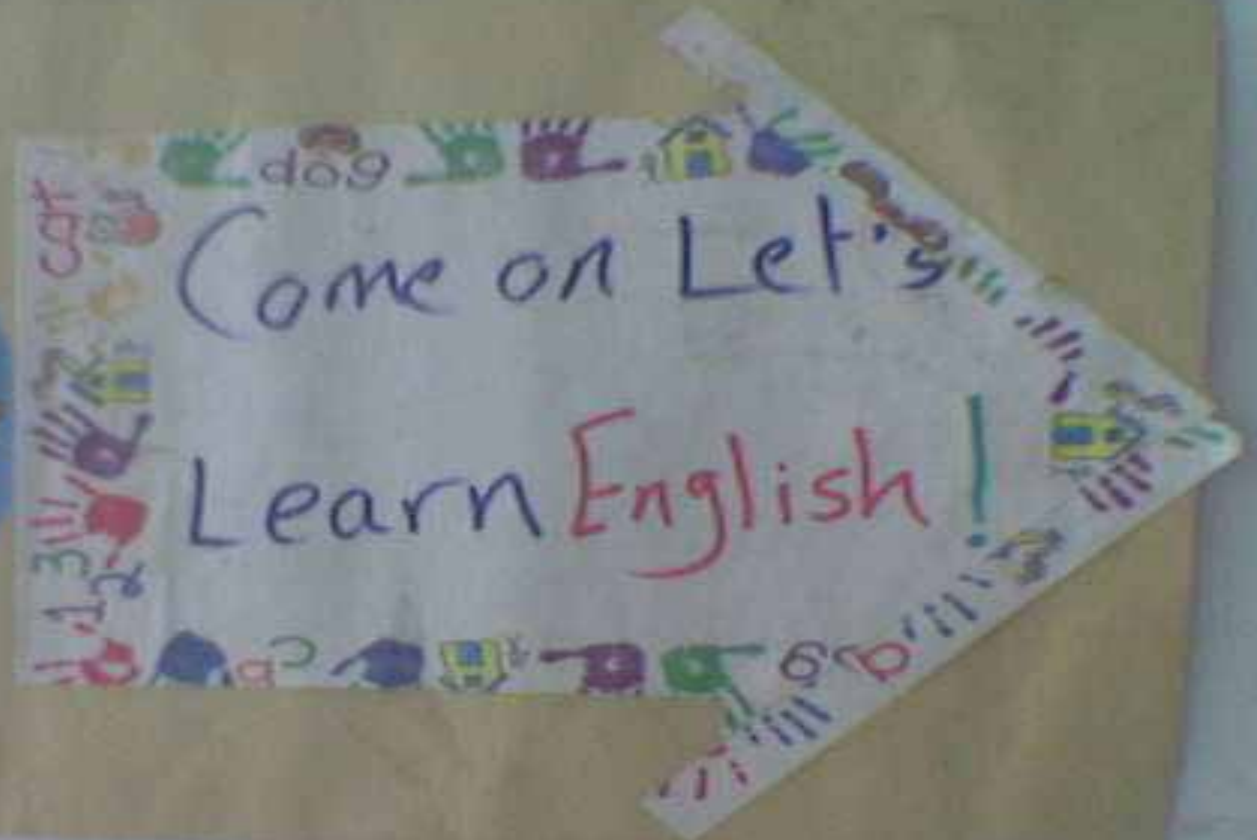 dog
cat
Come on Let's
Learn English!
123